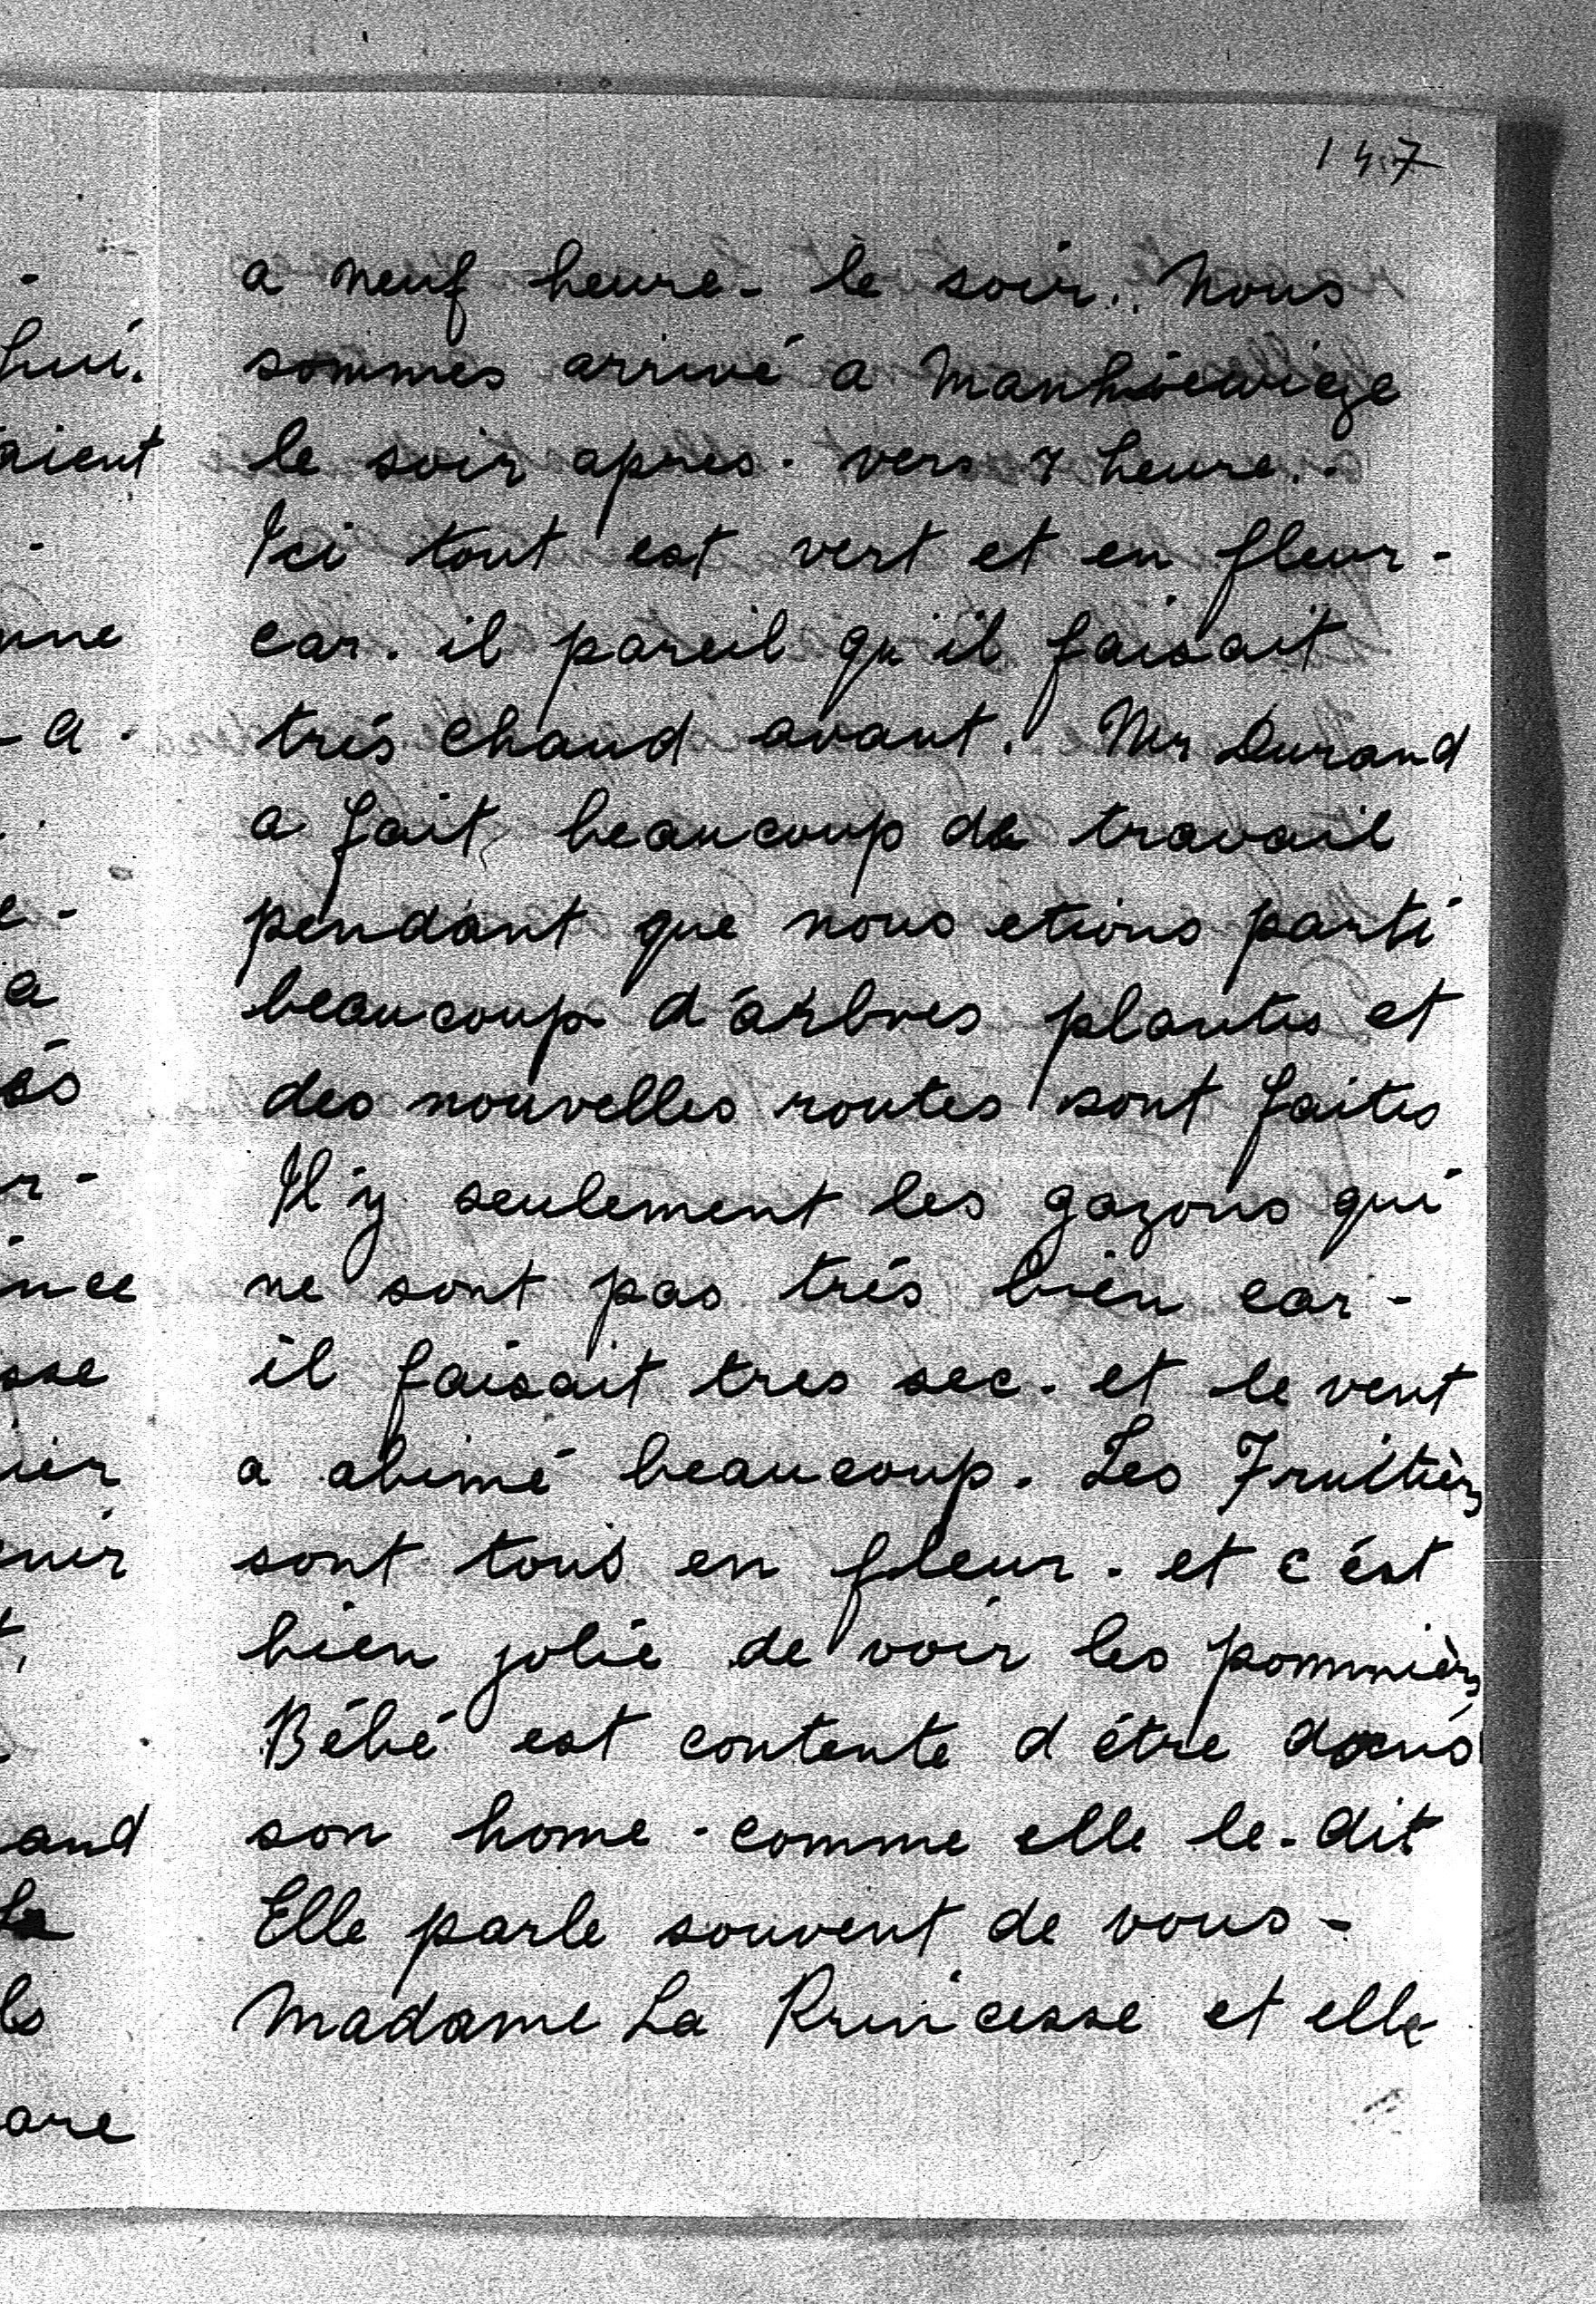 147
a neuf heure- le soir.. Nous
sommes arrivé a
le soir apres. vers 7 heure..
Ici tout est vert et en fleur-
car. il pareil qu'il faisait
trés chaud avant. Mr Durand
a fait beaucoup de travail
pendant que nous etions parti
beaucoup d'árbres plantes et
des nouvelles routes sont faites
Il'y seulement les gazons qui
ne sont pas trés bien car-
il faisait tres sec. et le vent
a abimé beaucoup. Les Fruitièrs
sont tous en fleur. et c'ést
bien jolie de voir les pommièrs
Bébé est contente d'étre dans
son home - comme elle le-dit
Elle parle souvent de vous-
Madame La Princesse et elle